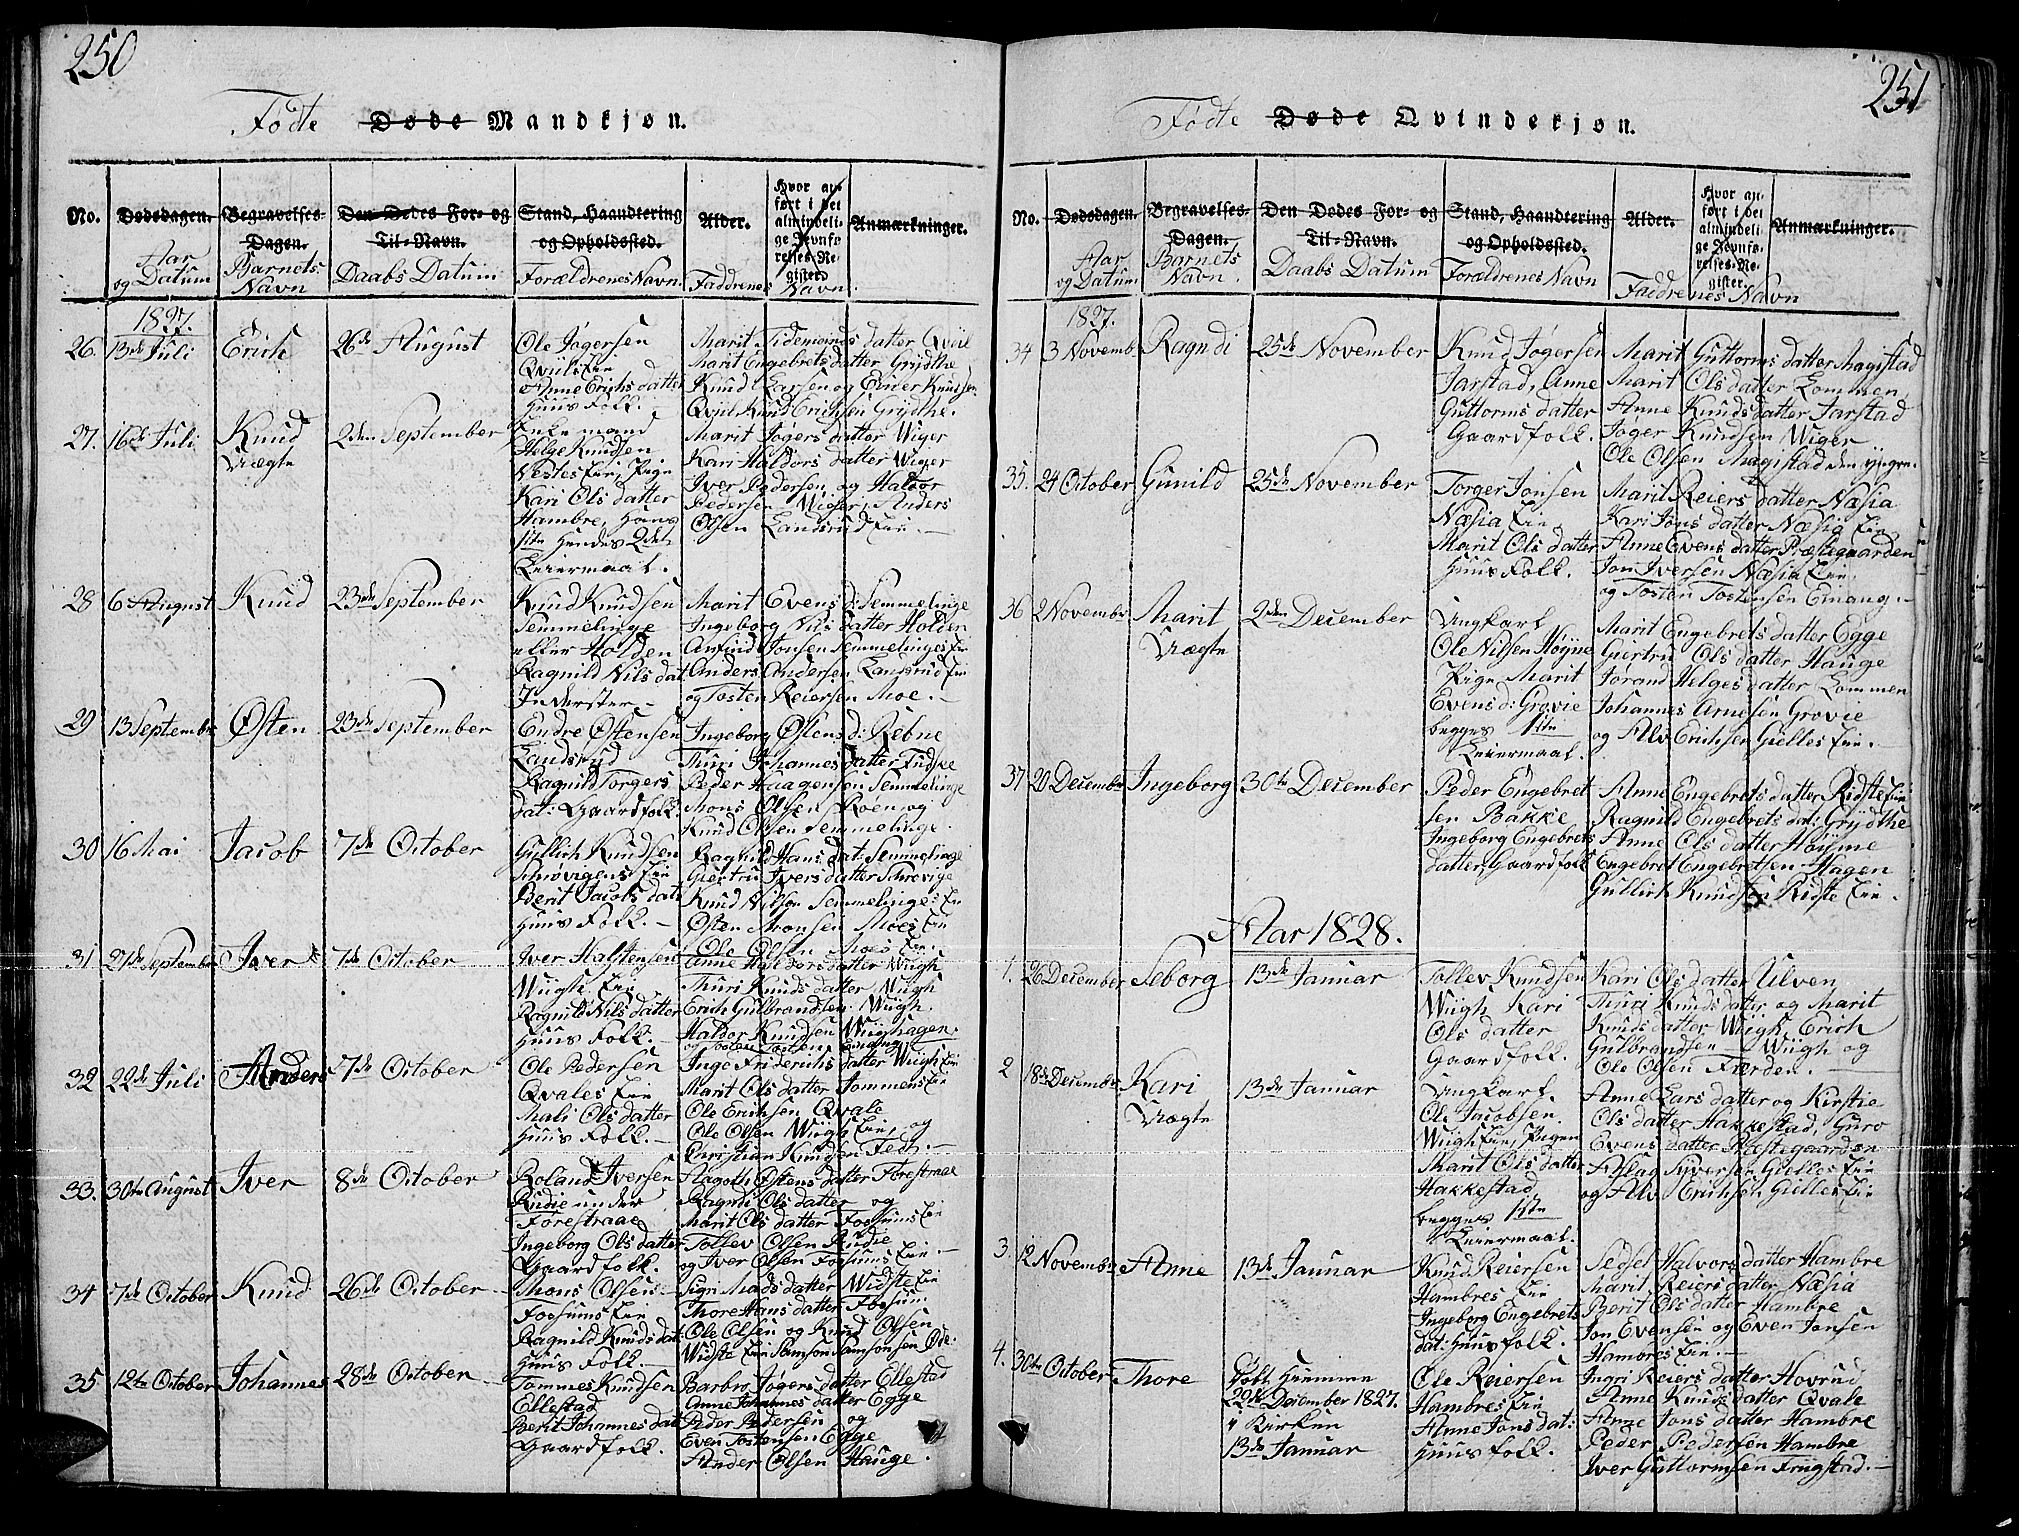 250
Fødte Døde Mandkjøn.
No.
Dødsdagen.
Aar
og Datum
Begravelses-
Dagen.
Barnets
Navn
Den Dødes For- og
Til-Navn.
Daabs Datum
Stand, Haandtering
og Opholdssted.
Forældrenes Navn.
Alder.
Faddrenes Navn.
Hvor an-
ført i det
almindeli-
ge Jevnfø-
relses-Re-
gister.
Anmærkninger.
1827.
26. 13de Juli Erich 26de August
Ole Jøgersen
Qviils Eie
Anne Erichs datter
Huus Folk.
Marit Tidemands datter Qviil
Marit Engebrets datter Grydthe
Knud Larsen og Elivər Knudsen
Qviil Knud Erichsen Grydthe.
27. 16de Juli Knud 2den September
Uægte
Enkemand
Helge Knudsen
Nestes Eie, Pige
Kari Ols datter
Hambre, Hans
1ste Hendes 2det
Leiermaal.
Marit Jøgers datter Wiger
Kari Haldors datter Wiger
Iver Pedersen og Haldor
Pedersen Wiger, Anders
Olsen Landsrud Eie.
28 6 August Knud 23de September
Knud Knudsen
Semmelinge
eller Holden
Ragnild Nils dat.
Inderster.
Marit Evens d: Semmelinge
Ingeborg Nils datter Holden
Anfind Jonsen Semmelinges Eie
Anders Andersen Landsrud Eie
og Tosten Reiersen Moe.
29 13 September Østen 23de September
Endre Østensen
Landsrud
Ragnild Torgers
dat: Gaardfolk.
Ingeborg Østens d: Rebne
Thuri Johannes datter Fudske
Peder Haagensen Semmelinge
Mons Olsen Roen og
Knud Olsen Semmelinge.
30 16 Mai Jacob 7de October
Gullich Knudsen
Schrøvigens Eie
Berit Jacobs dat:
Huus Folk.
Ragnild Hans dat: Semmelinge
Giertru Ivers datter Schrøvige
Knud Nilsen Semmelinges Eie
Østen Aronsen Moes Eie
Ole Olsen Moes Eie.
31 27de September Iver 7de October
Iver Halstensen
Wiigh Eie
Ragnild Nils datter
Huus Folk.
Anne Haldors datter Wiigh
Thuri Knuds datter Wiigh
Erich Gulbrandsen Wiigh.
Haldor Knudsen Wiighagen
og Tosten Tostens. Emang
32 22de Juli Anders 7de October
Ole Pedersen
Qvales Eie
Mali Ols datter
Huus Folk.
Inge Friderichs datter Wiigh Eie
Marit Ols datter Lommens Eie
Ole Erichsen Qvale
Ole Olsen Wiigh Eie, og
Christian Knudsen Fedt.
33. 30te August Iver 8de October
Roland Iversen
Rudie under
Forestraae
Ingeborg Ols datter
Gaardfolk.
Aagoth Østens datter Forestraae
Ragndi Ols datter og
Marit Ols datter Fossums Eie
Tollev Olsen Rudie
og Iver Olsen Fossums Eie.
34 7de October Knud 26de October
Mons Olsen
Fossums Eie
Ragnild Knuds dat:
Huus Folk.
Sigri Mads datter Widste Eie
Thore Hans datter Fossum.
Ole Olsen og Knud Olsen
Widste Eie Samson Samsonsen Øde.
35 12te October Johannes 28de October
Tommes Knudsen
Ellestad
Berit Johannes dat:
Gaardfolk.
Barbro Jøgers datter Ellestad
Anne Johannes datter Egge
Peder Pedersen og
Even Tostensen Egge
Ander Olsen Hauge.
251
Fødte Døde Qvindekjøn.
No.
Dødsdagen.
Aar
og Datum
Begravelses-
Dagen.
Barnets
Navn.
Den Dødes For- og
Til-Navn.
Daabs Datum
Stand, Haandtering
og Opholdssted.
Forældrenes Navn
Alder.
Faddrenes Navn
Hvor an-
ført i det
almindeli-
ge Jevnfø-
relses-Re-
gister.
Anmærkninger.
1827.
34 3 Novemb. Ragndi 25de November
Knud Jøgersen
Jarstad, Anne
Guttorms datter
Gaardfolk.
Marit Guttorms datter Magistad
Marit Ols datter Lommen
Anne Knuds datter Jarstad
Jøger Knudsen Wiger
Ole Olsen Magistad den yngre.
35. 24 October Gunild 25de November
Torger Jonsen
Næsia Eie
Marit Ols datter
Huus Folk.
Marit Reiers datter Næsia
Kari Jons datter Næsia Eie
Anne Evens datter Præstegaarden
Jon Iversen Næsia Eie,
og Tosten Tostensen Emang.
36 2 Novembr Marit 2den December
Uægte
Ungkarl
Ole Nilsen Høyne
Pige Marit
Evens d: Grøvie
begges 1ste
Leiermaal.
Marit Engebrets datter Egge
Giertru Ols datter Hauge
Jorand Helges datter Lommen
Johannes Arnesen Grøvie
og Alv Erichsen Gielles Eie.
37 20 Decembr Ingeborg 30te December
Peder Engebret
sen Bakke
Ingeborg Engebrets
datter, Gaardfolk
Anne Engebrets datter Ridste Eie
Ragnild Engebrets dat: Grydthe
Anne Ols datter Høyme
Engebret Engebretsen Hagen
Gullich Knudsen Ridste Eie.
Aar 1828.
1. 26 December Seborg 13de Januar
Tollev Knudsen
Wiigh Kari
Ols datter
Gaardfolk.
Kari Ols datter Ulven
Thuri Knuds datter og Marit
Knuds datter Wiigh, Erich
Gulbrandsen Wiigh og
Ole Olsen Færden.
2 18de Decembr Kari 13de Januar
Uægte
Ungkarl
Ole Jacobsen
Wiigh Eie, Pigen
Marit Ols datter
Hakkestad
begges 1ste
Leiermaal.
Anne Lars datter og Kirstie
Ols datter Hakkestad, Guro
Evens datter Præstegaarden
Aslag Syversen Gielles Eie
og Alv Erichsen Gilles Eie
3. 12 Novembr Anne 13de Januar
Knud Reiersen
Hambres Eie
Ingeborg Engebrets
dat: Huusfolk.
Sedsel Halvors datter Hambre
Marit Reiers datter Næsia
Berit Ols datter Hambre
Jon Evensen og Even Jonsen
Hambres Eie.
4. 30te October Thore
Døbt hiemme
22de December 1827.
i Kirken
13de Januar
Ole Reiersen
Hambres Eie
Anne Jons dat:
Huusfolk.
Ingri Reiers datter Hovrud
Anne Knuds datter Qvale
Anne Jons datter Hambre
Peder Pedersen Hambre
Iver Guttormsen Frügstad.